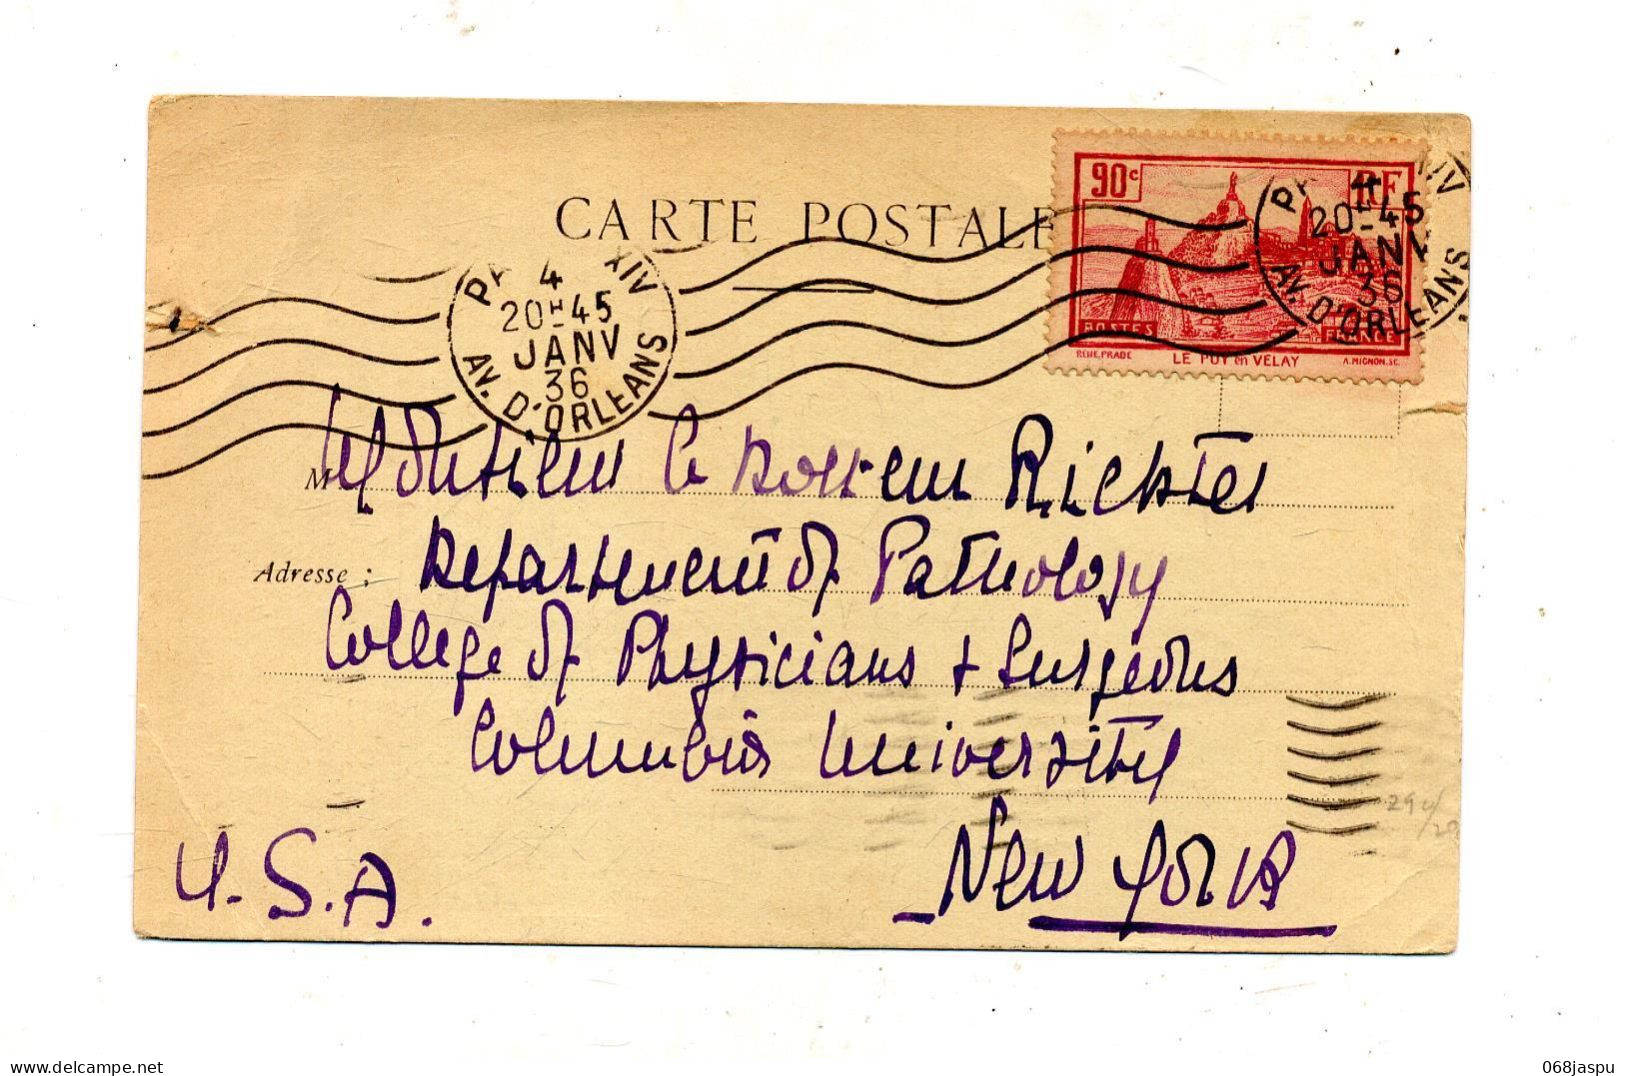 CARTE POSTALE
90c RF
POSTES FRANCE
RENE.PRADE LE PUY en VELAY A.MIGNON.SC.
PA XIV
4
20H45
JANV
36
AV. D'ORLEANS
P XIV
4
20H45
JANV
36
AV. D'ORLEANS
M Monsieur le Docteur Richter
Adresse : Department of Pathology
College of Physicians + Surgeons
Columbia University
New York
U.S.A.
delcampe.net
068jaspu